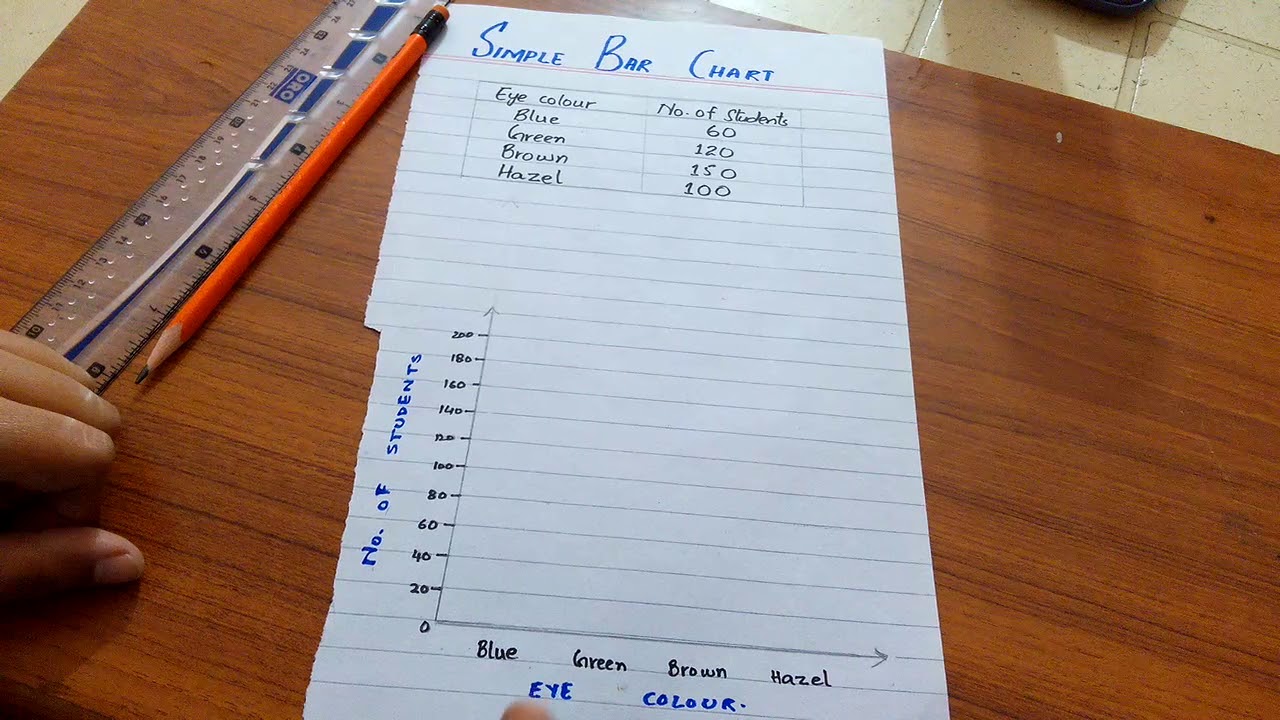 SIMPLE BAR CHART
Eye colour No. of Students
Blue 60
Green 120
Brown 150
Hazel 100
200
180
160
140
120
100
80
60
40
20
0
No. OF STUDENTS
Blue Green Brown Hazel
EYE COLOUR.
ORO